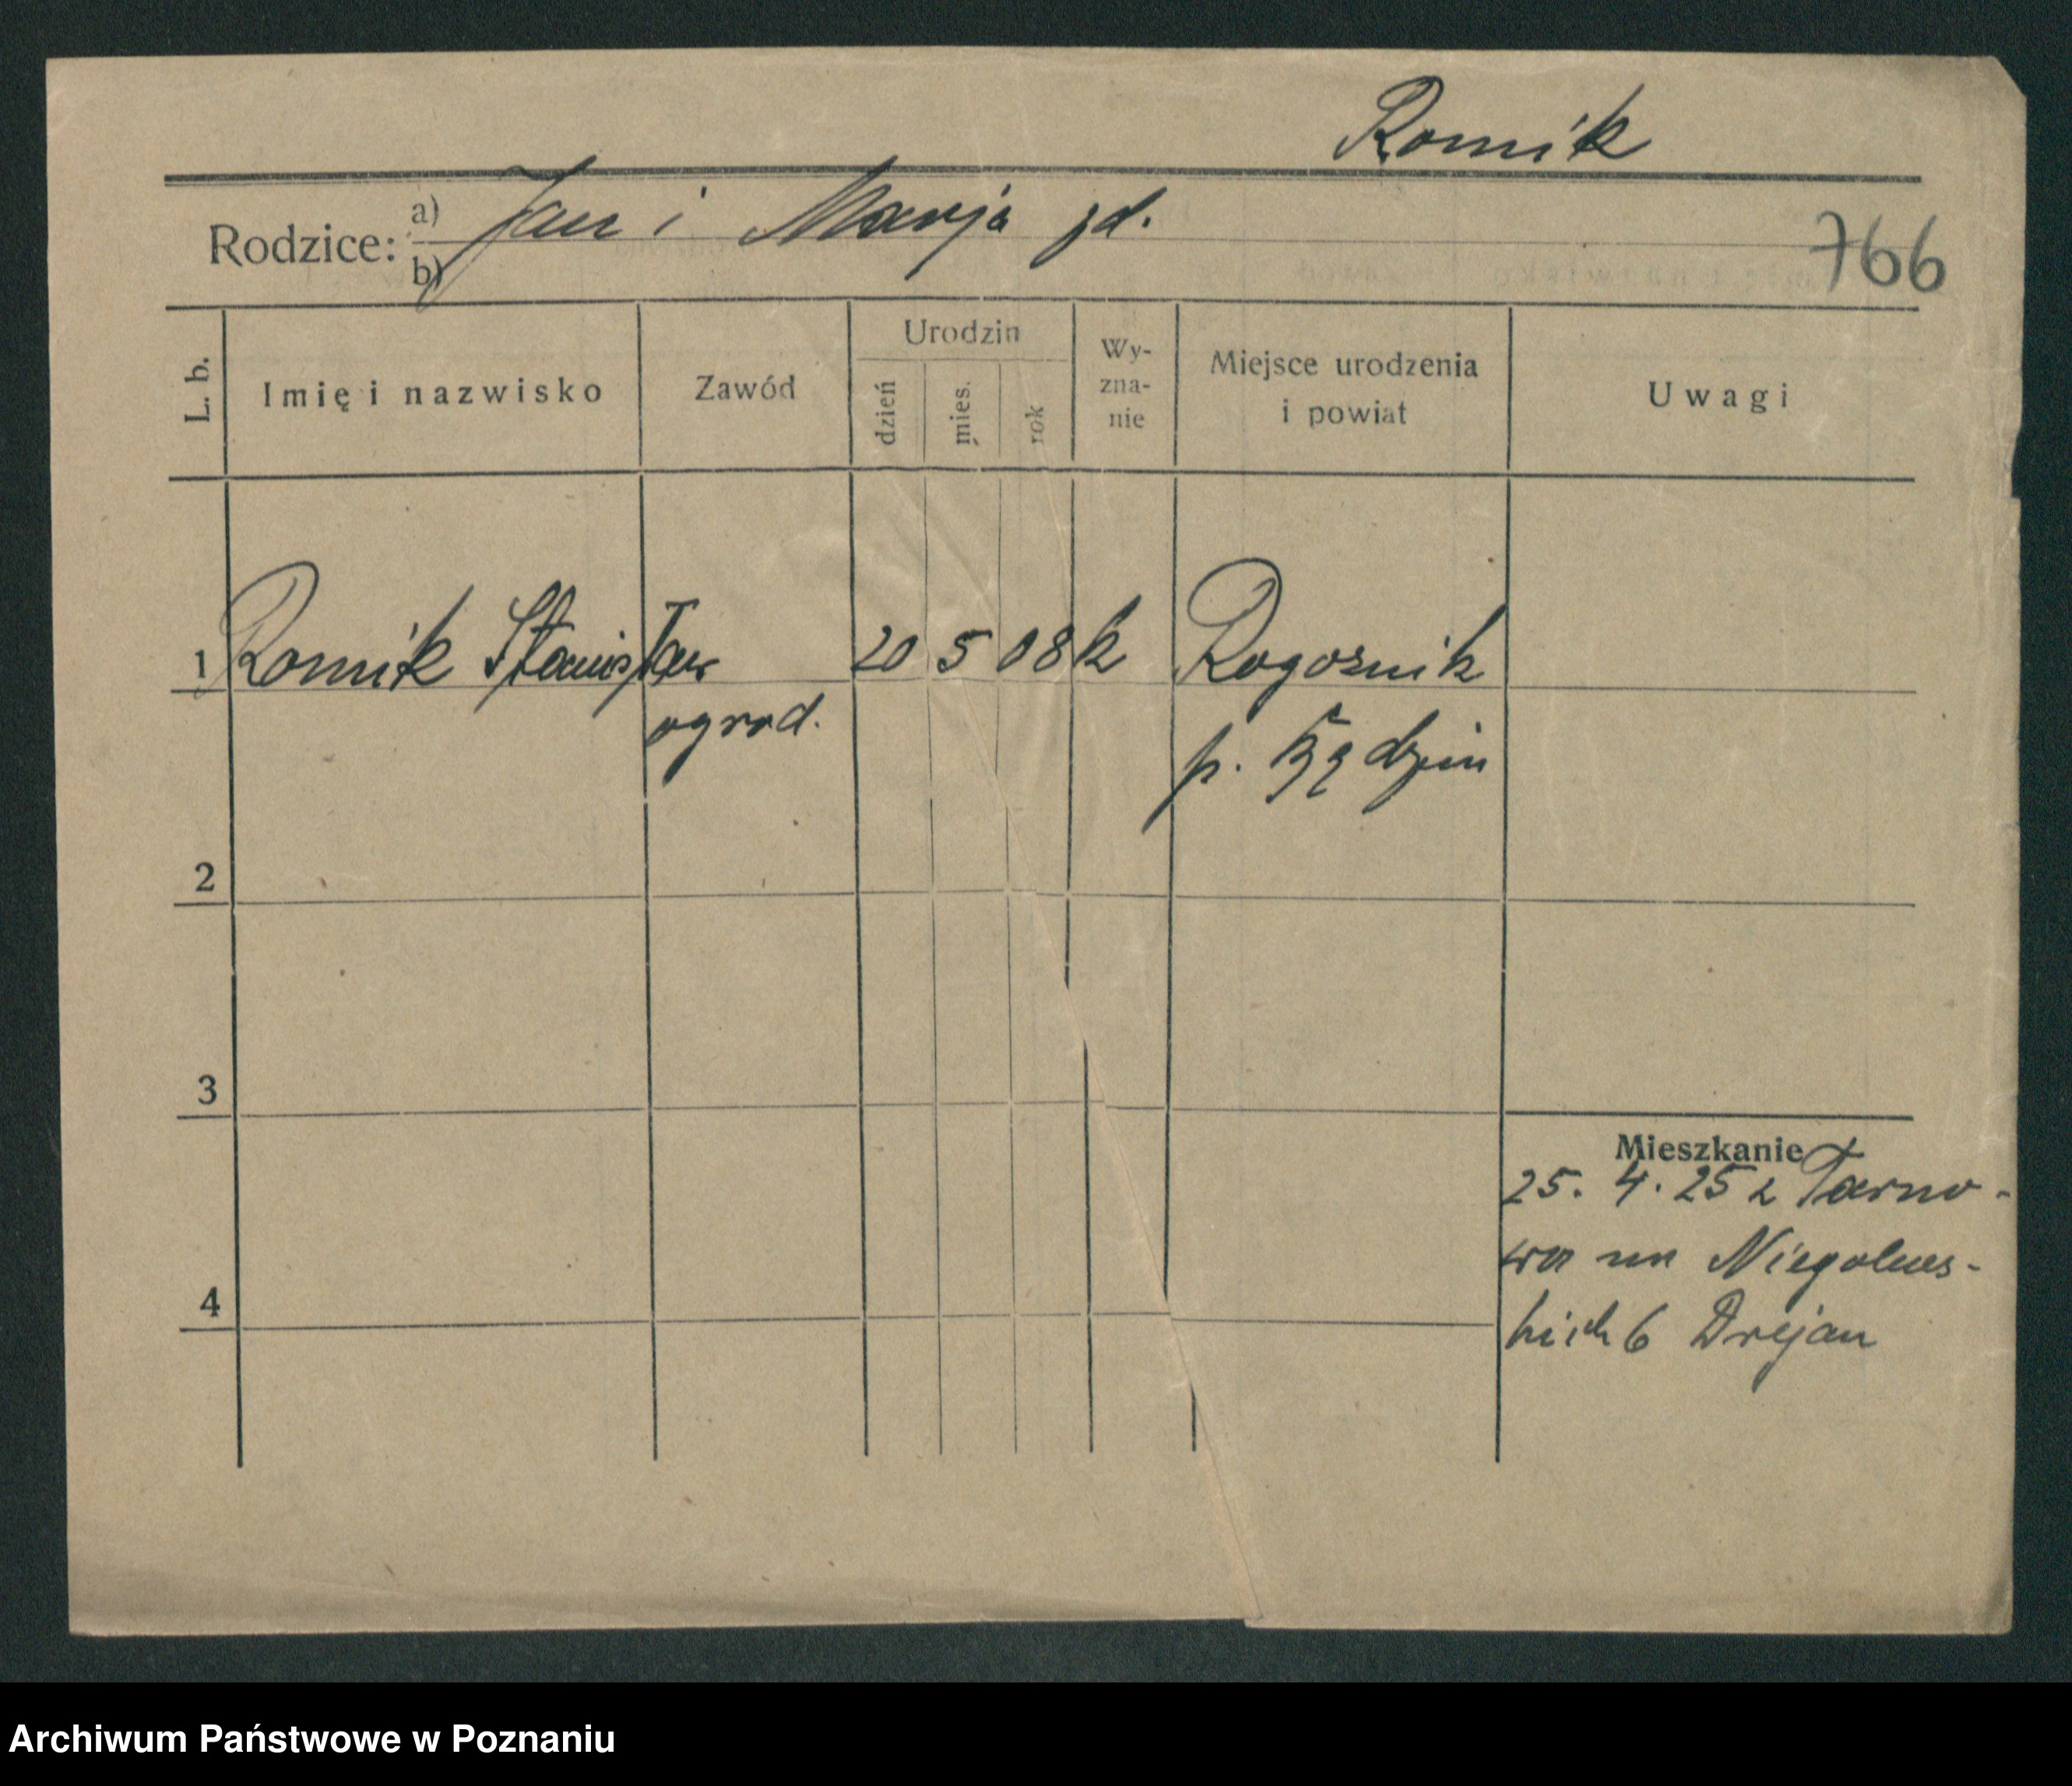 Romik
Rodzice: a) Jan i Marja jd.
b)
766
L. b. Imię i nazwisko Zawód Urodzin dzień mies. rok Wy-zna-nie Miejsce urodzenia i powiat Uwagi
1 Romik Stanisław 20 5 08 k Rogoznik
ogrod. p. Będzin
2
3
Mieszkanie
25. 4. 25 z Tarno-
wa na Niegolews-
4
kich 6 Drejan
Archiwum Państwowe w Poznaniu